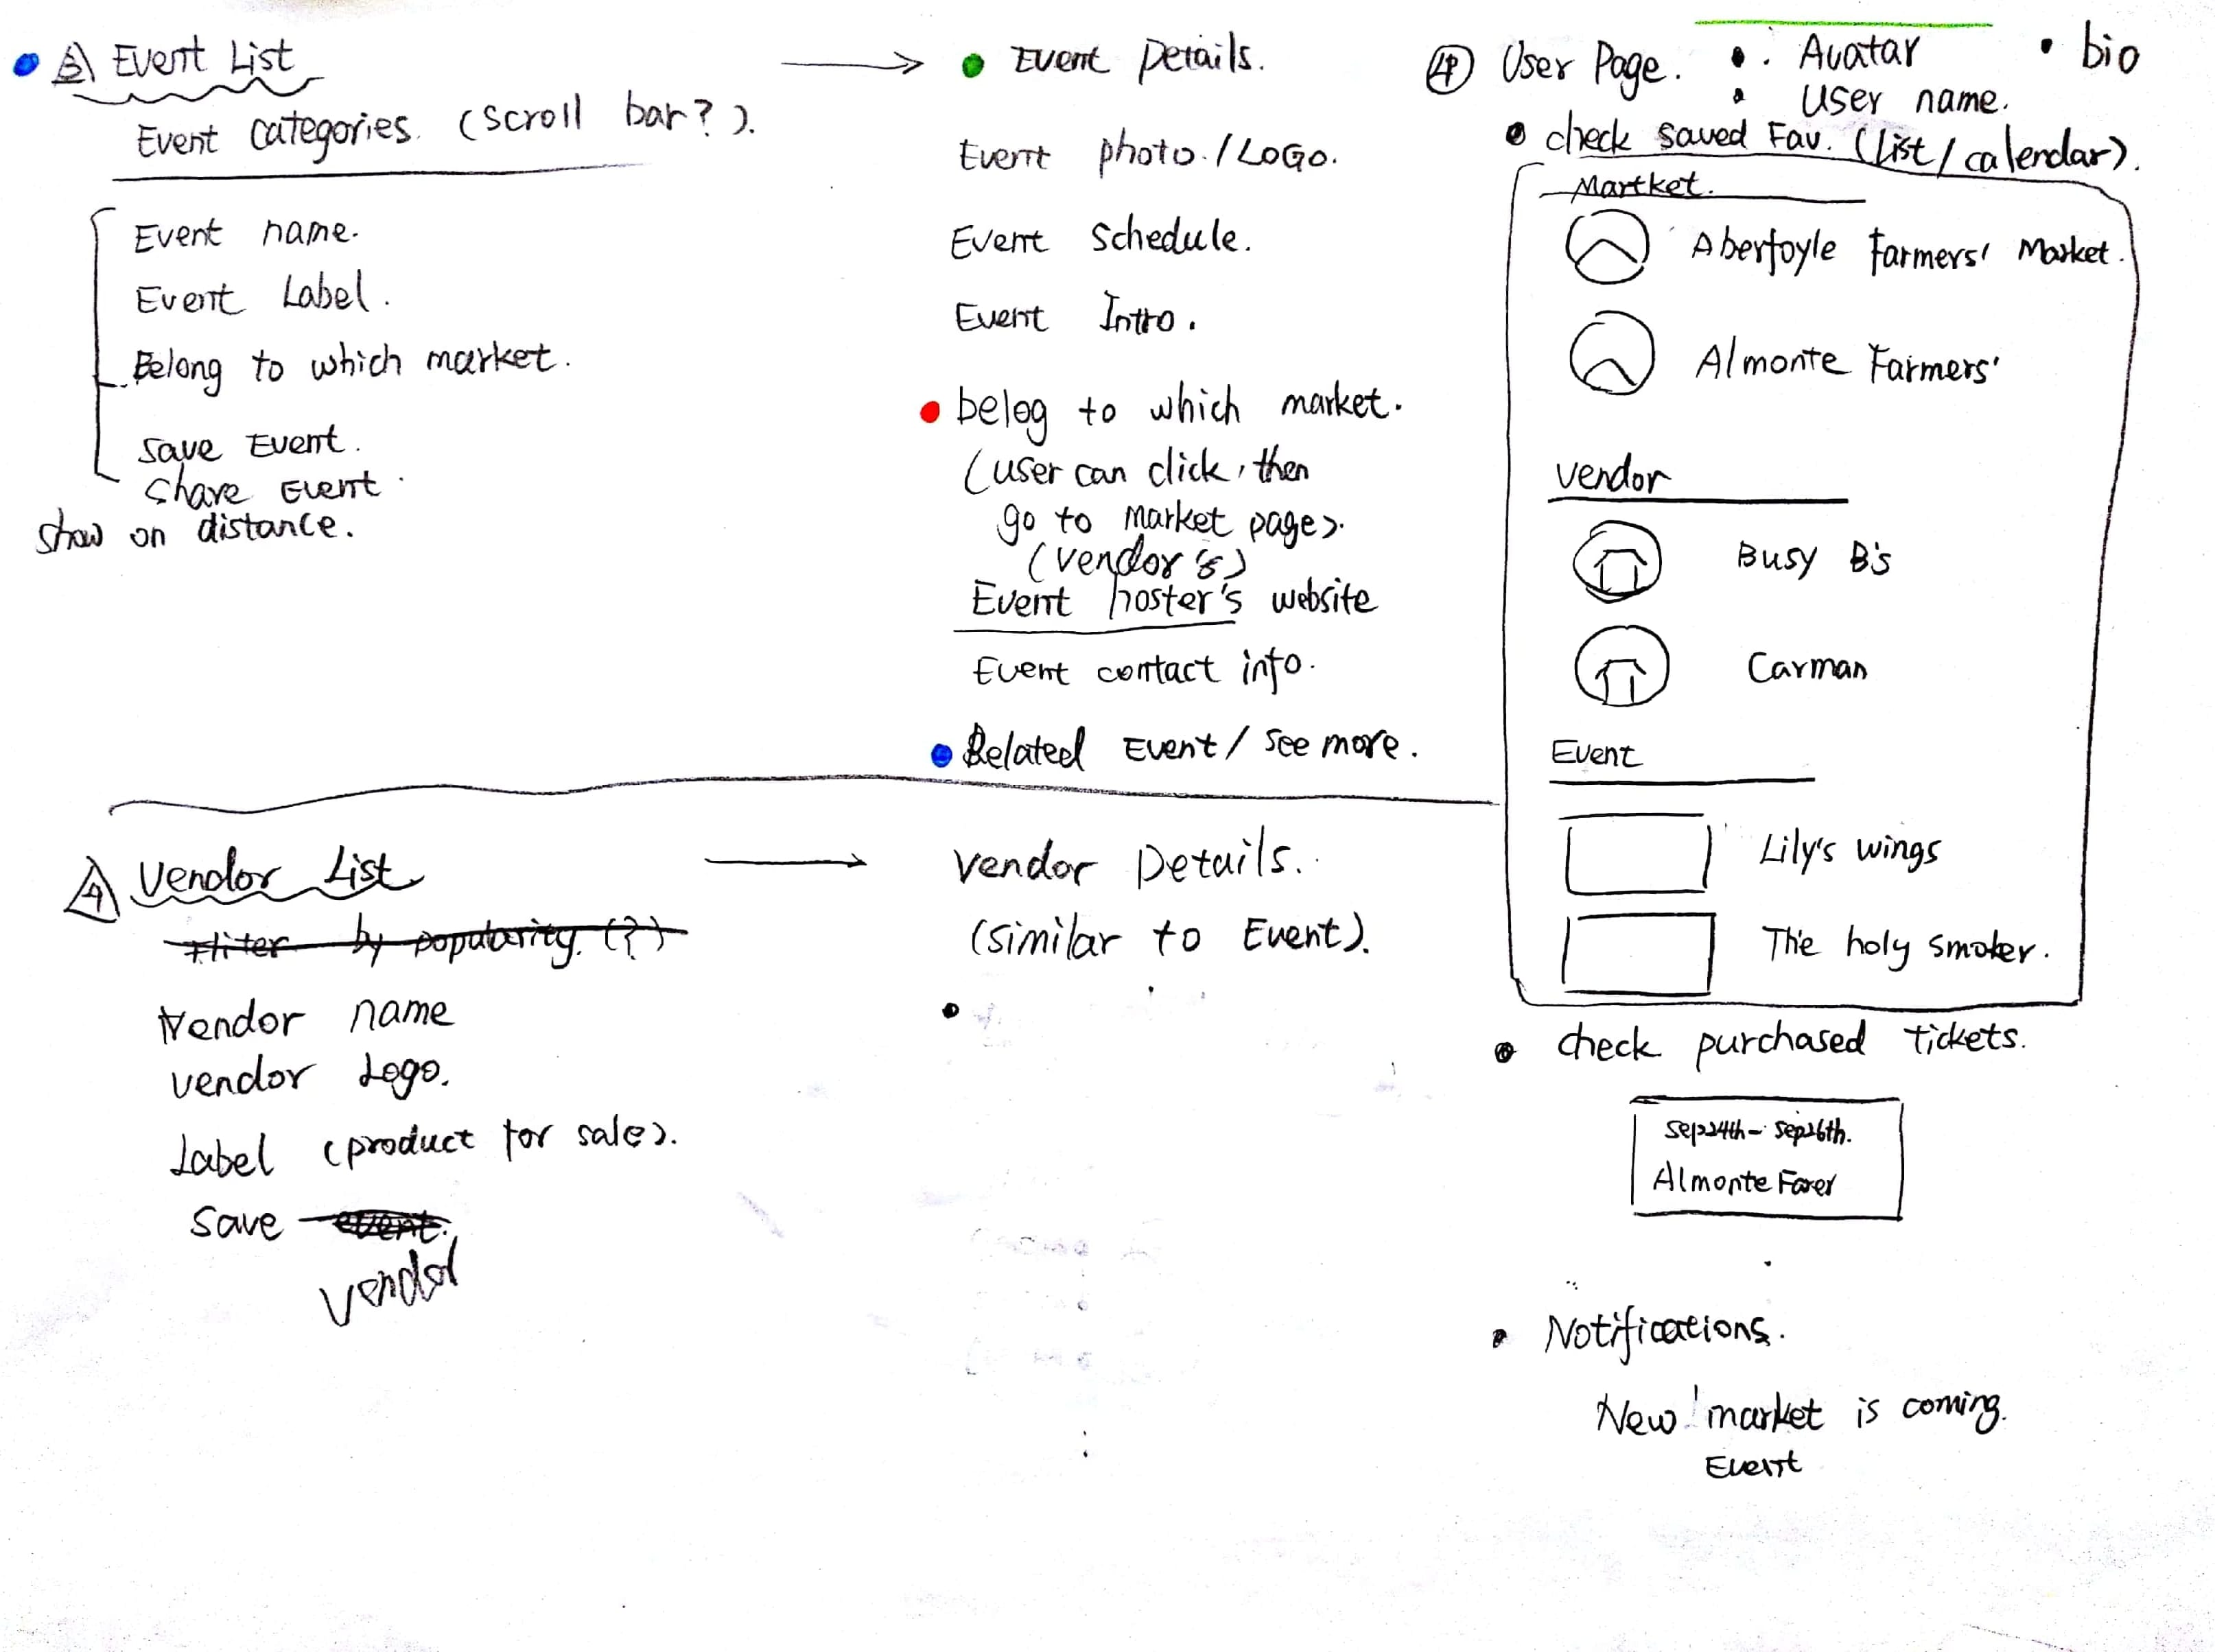 3 Event List
Event categories. (scroll bar?).
Event name.
Event Label.
Belong to which market.
Save Event.
Share Event.
show on distance.
Event Details.
Event photo./LOGO.
Event schedule.
Event Intro.
belog to which market.
(user can click, then
go to market page).
(vendor's)
Event hoster's website
Event contact info.
Related Event/ see more.
4 Vendor List
Fliter by popularity. (?)
Vendor name
vendor Logo.
Label (product for sale).
Save event.
Vendor
Vendor Details.
(similar to Event).
4 User Page.
Avatar
bio
User name.
check saved Fav. (list/calendar).
Martket.
Aberfoyle Farmers' Market.
Almonte Farmers'
Vendor
Busy B's
Carman
Event
Lily's wings
The holy smoker.
check purchased tickets.
Sep24th- Sep26th.
Almonte
Notifications.
New market is coming.
Event